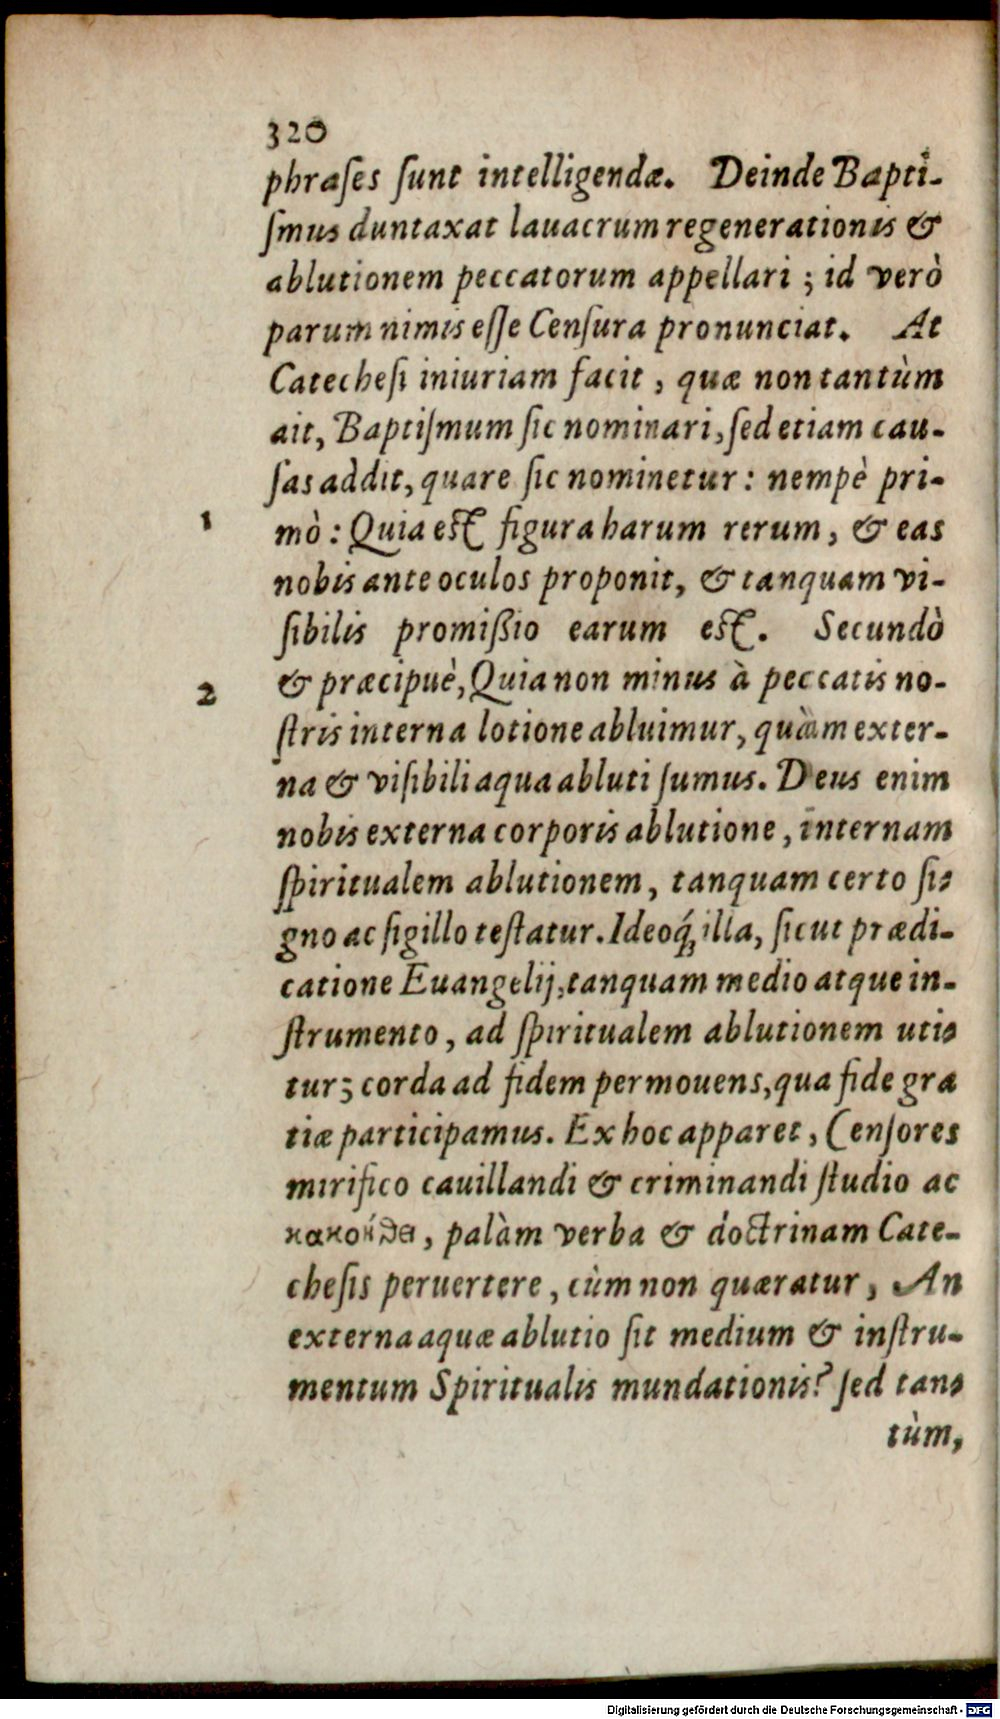 320
phraſes ſunt intelligendæ. Deinde Bapti-
ſmus duntaxat lauacrum regenerationis &
ablutionem peccatorum appellari ; id verò
parum nimis eſſe Cenſura pronunciat. At
Catecheſi iniuriam facit , quæ non tantùm
ait, Baptiſmum ſic nominari, ſed etiam cau-
ſas addit, quare ſic nominetur : nempè pri-
1 mò : Quia eſt figura harum rerum, & eas
nobis ante oculos proponit, & tanquam vi-
ſibilis promiſsio earum eſt. Secundò
2 & præcipuè, Quia non minus à peccatis no-
ſtris interna lotione abluimur, quàm exter-
na & viſibili aqua abluti ſumus. Deus enim
nobis externa corporis ablutione, internam
ſpiritualem ablutionem, tanquam certo ſi-
gno ac ſigillo teſtatur. Ideoq́; illa, ſicut prædi-
catione Euangelij, tanquam medio atque in-
ſtrumento, ad ſpiritualem ablutionem uti-
tur; corda ad fidem permouens, qua fide gra
tiæ participamus. Ex hoc apparet, Cenſores
mirifico cauillandi & criminandi ſtudio ac
, palàm verba & doctrinam Cate-
cheſis peruertere, cùm non quæratur, An
externa aquæ ablutio ſit medium & inſtru-
mentum Spiritualis mundationis? ſed tan-
tùm,
Digitalisierung gefördert durch die Deutsche Forschungsgemeinschaft - DFG